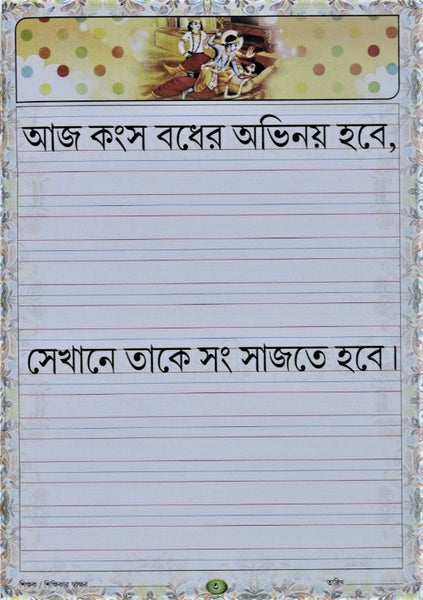 আজ কংস বধের অভিনয় হবে,
সেখানে তাকে সং সাজতে হবে।
শিক্ষক / শিক্ষিকার স্বাক্ষর
৩
তারিখ